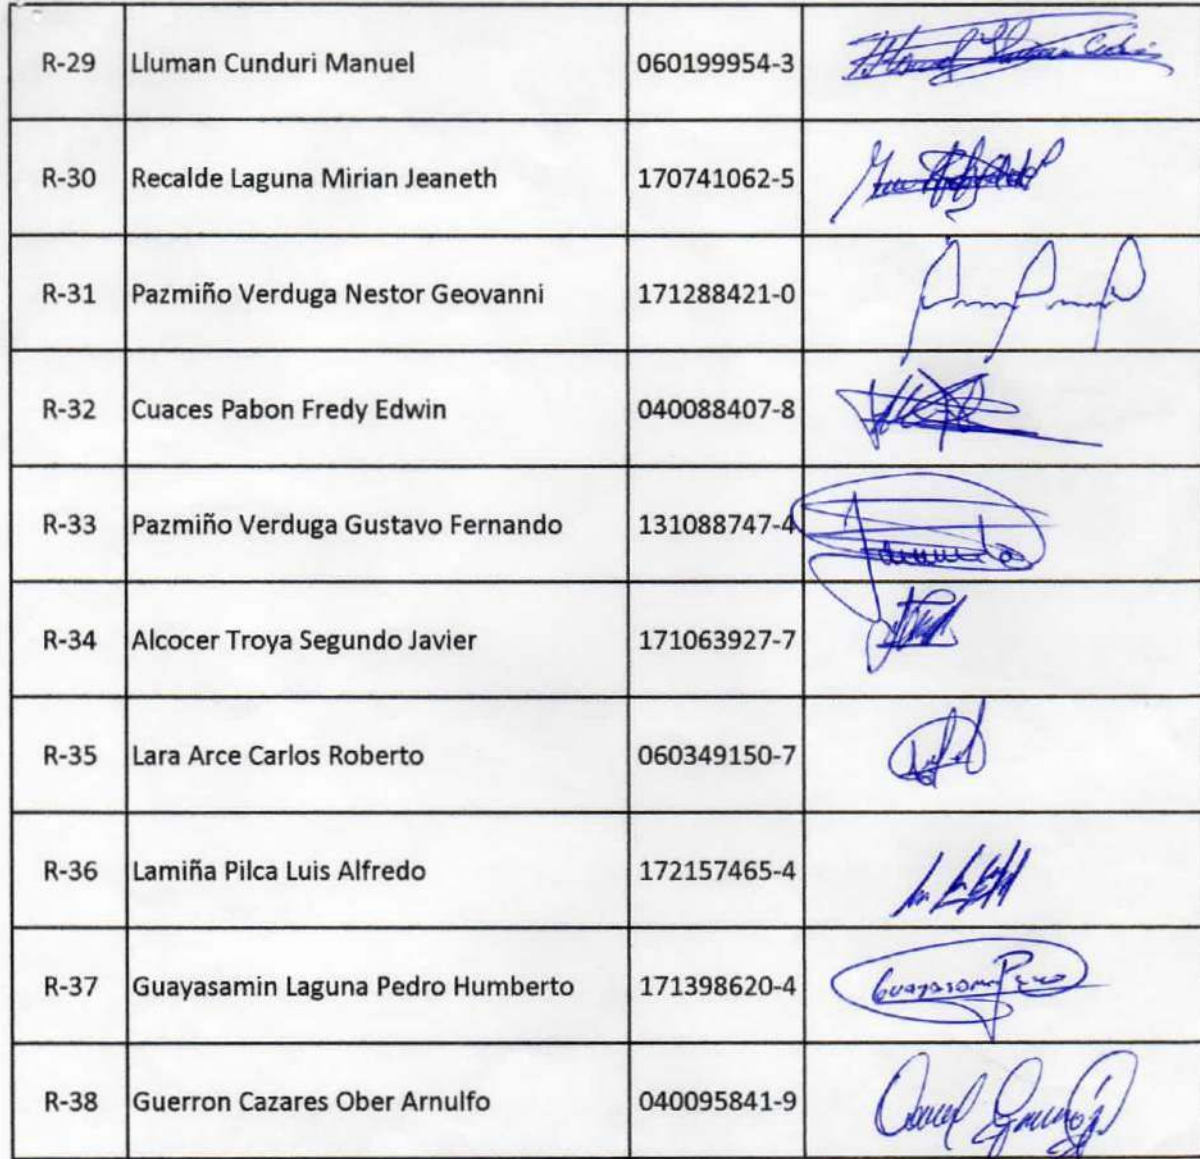 R-29 Lluman Cunduri Manuel 060199954-3
R-30 Recalde Laguna Mirian Jeaneth 170741062-5
R-31 Pazmiño Verduga Nestor Geovanni 171288421-0
R-32 Cuaces Pabon Fredy Edwin 040088407-8
R-33 Pazmiño Verduga Gustavo Fernando 131088747-4
R-34 Alcocer Troya Segundo Javier 171063927-7
R-35 Lara Arce Carlos Roberto 060349150-7
R-36 Lamiña Pilca Luis Alfredo 172157465-4
R-37 Guayasamin Laguna Pedro Humberto 171398620-4
R-38 Guerron Cazares Ober Arnulfo 040095841-9